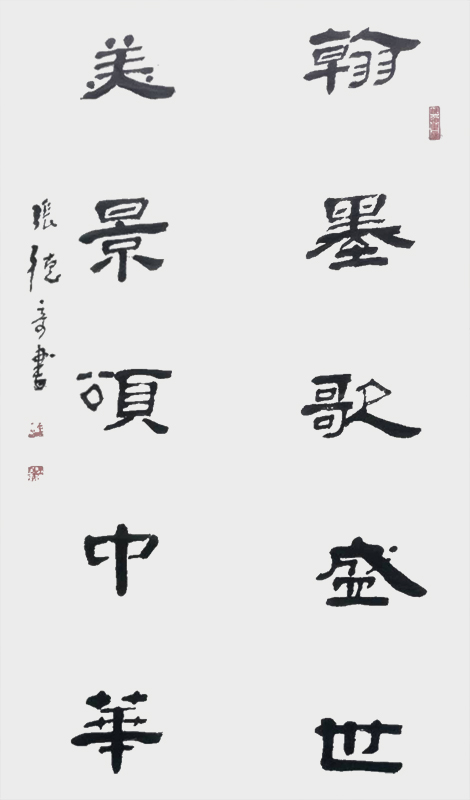 翰墨歌盛世
美景頌中華
張德奇書